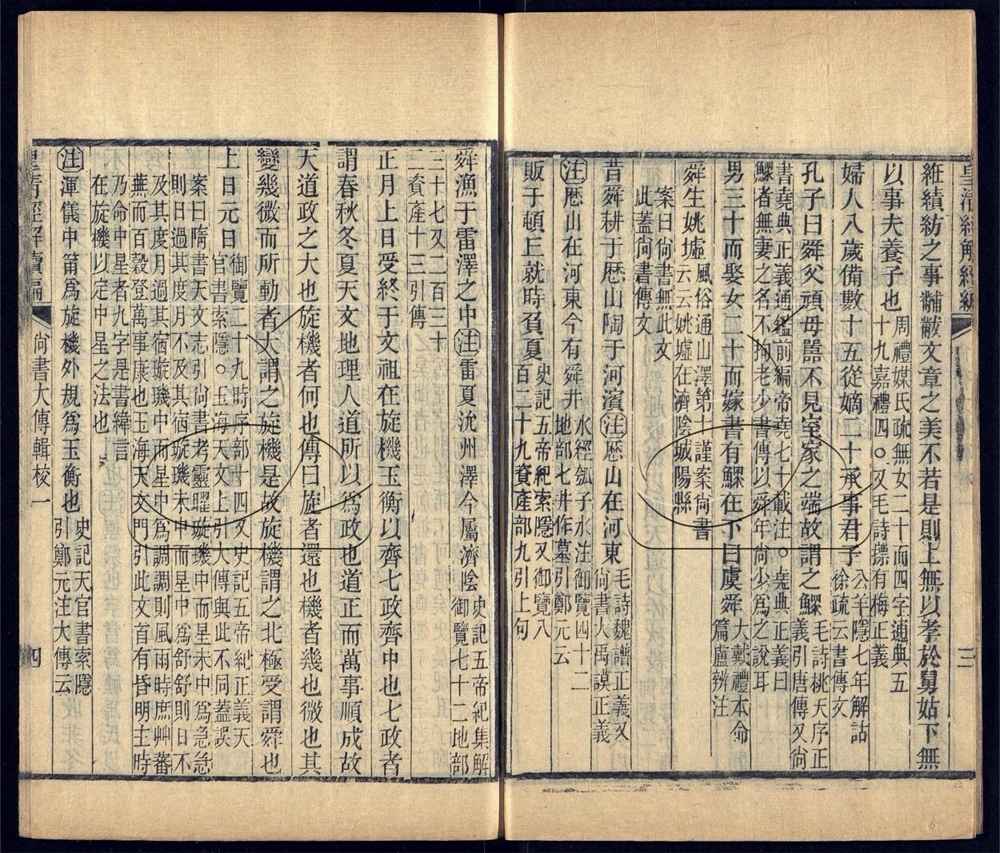 絍績紡之事黼黻文章之美不若是則上無以孝於舅姑下無
以事夫養子也周禮媒氏疏無女二十而四字通典五十九嘉禮四○又毛詩摽有梅正義
婦人八歲備數十五從嫡二十承事君子公羊隱七年解詁徐疏云書傳文
孔子曰舜父頑母嚚不見室家之端故謂之鰥毛詩桃夭序正義引唐傳又尚
書堯典正義通鑑前編帝堯七十載注○堯典正義曰鰥者無妻之名不拘老少書傳以舜年尚少為之說耳
男三十而娶女二十而嫁書有鰥在下曰虞舜大戴禮本命篇盧辨注
舜生姚墟風俗通山澤第十謹案尚書云云姚墟在濟陰城陽縣
案曰尚書無此文此蓋尚書傳文
昔舜耕于厤山陶于河濱注厤山在河東毛詩魏譜正義又尚書大禹謨正義
注厤山在河東今有舜井水經瓠子水注御覽四十二地部七井作墓引鄭元云
販于頓丘就時負夏史記五帝紀索隱又御覽八百二十九資產部九引上句
三
舜漁于雷澤之中注雷夏沇州澤今屬濟陰史記五帝紀集解御覽七十二地部
三十七又二百三十三資產十三引傳
正月上日受終于文祖在旋機玉衡以齊七政齊中也七政者
謂春秋冬夏天文地理人道所以為政也道正而萬事順成故
天道政之大也旋機者何也傳曰旋者還也機者幾也微也其
變幾微而所動者大謂之旋機是故旋機謂之北極受謂舜也
上日元日御覽二十九時序部十四又史記五帝紀正義天官書索隱○玉海天文上引大傳與此不同蓋誤
案曰隋書天文志引尚書考靈曜璇璣中而星未中為急急則日過其度月不及其宿璇璣未中而星中為舒舒則日不
及其度月過其宿璇璣中而星中為調調則風雨時庶艸蕃蕪而百穀登萬事康也玉海天文門引此文首有昏明主時
乃命中星者九字是書緯言在旋機以定中星之法也
注渾儀中筩為旋機外規為玉衡也史記天官書索隱引鄭元注大傳云
皇清經解續編
尚書大傳輯校一
四